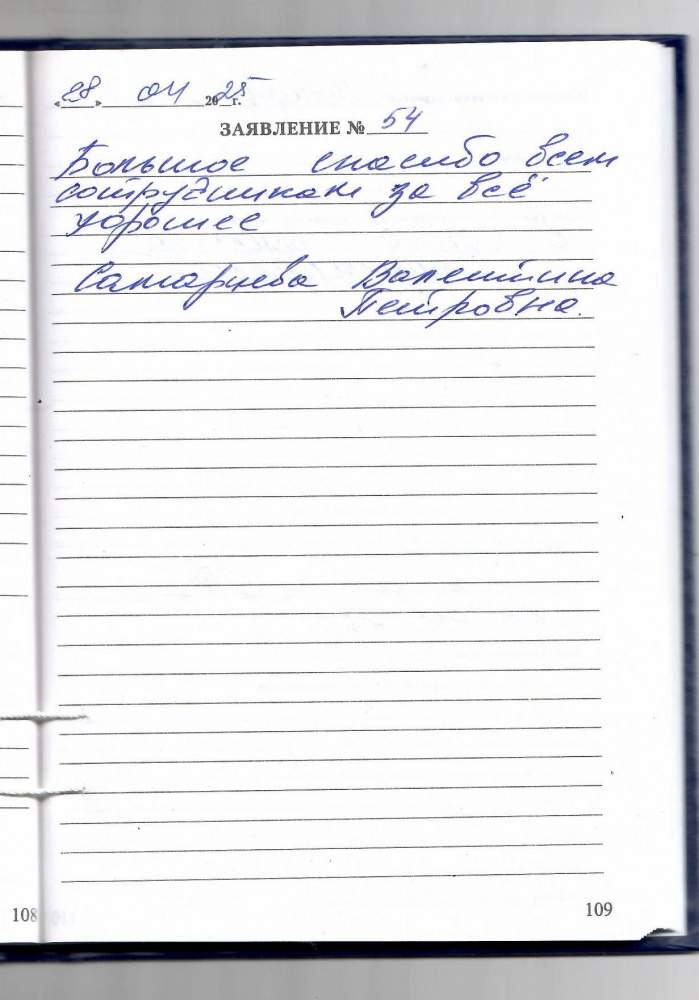 «28» 04 2025 г.
ЗАЯВЛЕНИЕ № 54
Большое спасибо всем
сотрудникам за всё
хорошее
Валентина
Петровна.
108
109